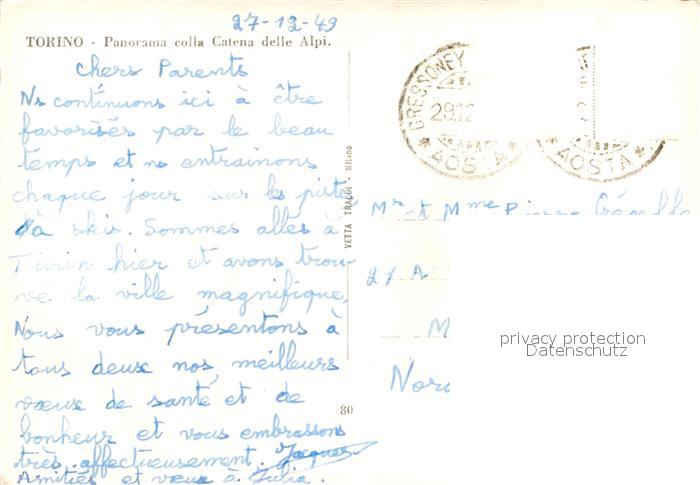 27-12-49
TORINO - Panorama colla Catena delle Alpi.
Chers Parents
Ns continuons ici à être
favorisés par le beau
temps et ns entrainons
chaque jour sur les pistes
à skis. Sommes allés à
Turin hier et avons trou-
vé la ville magnifique.
Nous vous présentons à
tous deux nos meilleurs
vœux de santé et de
bonheur et vous embrassons
très affectueusement. Jacques
Amitiés et vœux à Julia.
VETTA TRALDI - Milano
80
GRESSONEY
29.12
* AOSTA *
* AOSTA *
Mr et Mme Pierre
21 A
M
privacy protection
Datenschutz